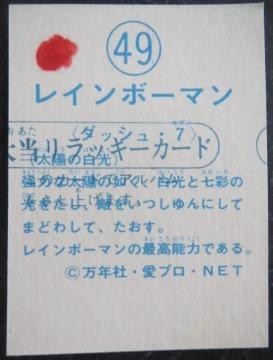 49
レインボーマン
〈ダッシュ・7〉
おあた
大当りラッキーカード
(太陽の白光)
強力な太陽の如く、白光と七彩の
光をだし、敵をいつしゆんにして
まどわして、たおす。
レインボーマンの最高能力である。
©万年社・愛プロ・NET